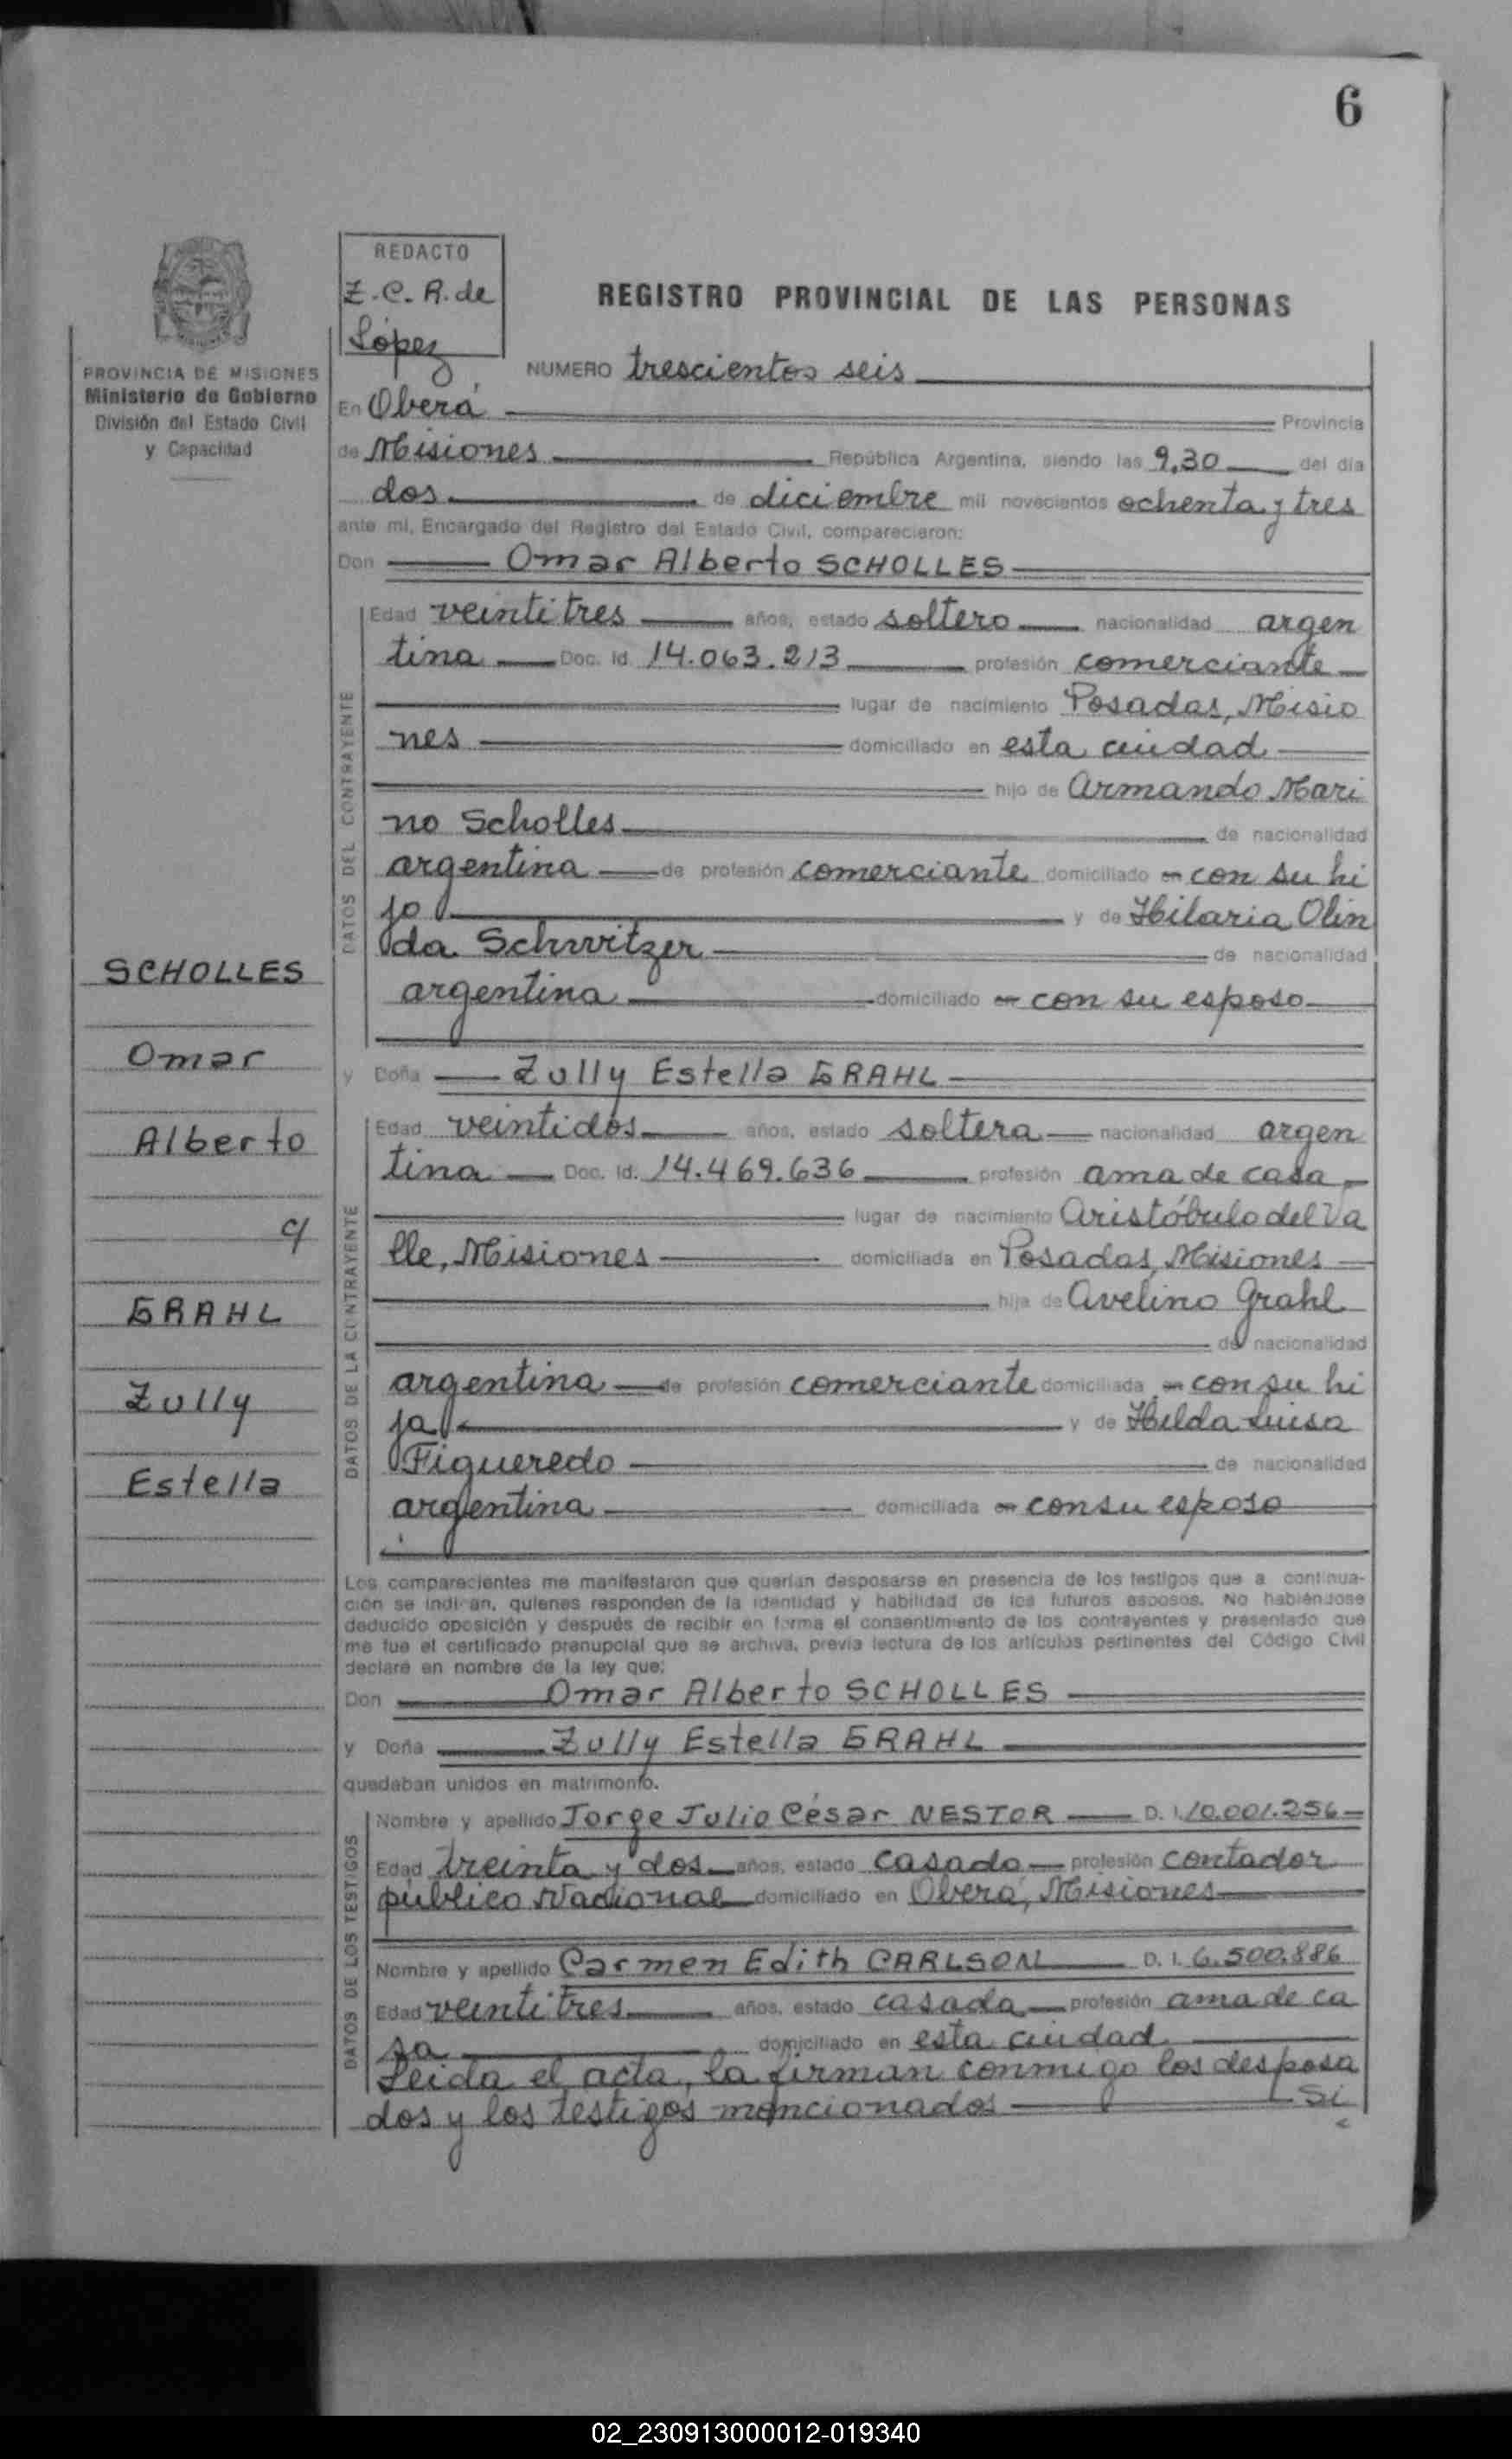 6
REDACTO
Z.C.R. de
López
REGISTRO PROVINCIAL DE LAS PERSONAS
PROVINCIA DE MISIONES
Ministerio de Gobierno
División del Estado Civil
y Capacidad
NUMERO trescientos seis
En Oberá Provincia
de Misiones República Argentina, siendo las 9,30 del día
dos de diciembre mil novecientos ochenta y tres
ante mí, Encargado del Registro del Estado Civil, comparecieron:
Don Omar Alberto SCHOLLES
DATOS DEL CONTRAYENTE
Edad veintitres años, estado soltero nacionalidad argen
tina Doc. Id. 14.063.213 profesión comerciante
lugar de nacimiento Posadas, Misio
nes domiciliado en esta ciudad
hijo de Armando Mari
no Scholles de nacionalidad
argentina de profesión comerciante domiciliado en con su hi
jo y de Hilaria Olin
da Schwitzer de nacionalidad
argentina domiciliado en con su esposo
y Doña Zully Estella GRAHL
DATOS DE LA CONTRAYENTE
Edad veintidós años, estado soltera nacionalidad argen
tina Doc. Id. 14.469.636 profesión ama de casa
lugar de nacimiento Aristóbulo del Va
lle, Misiones domiciliada en Posadas, Misiones
hija de Avelino Grahl
de nacionalidad
argentina de profesión comerciante domiciliada en con su hi
ja y de Hilda Luisa
Figueredo de nacionalidad
argentina domiciliada en con su esposo
Los comparecientes me manifestaron que querían desposarse en presencia de los testigos que a continua-
ción se indican, quienes responden de la identidad y habilidad de los futuros esposos. No habiéndose
deducido oposición y después de recibir en forma el consentimiento de los contrayentes y presentado que
me fue el certificado prenupcial que se archiva, previa lectura de los artículos pertinentes del Código Civil
declaré en nombre de la ley que:
Don Omar Alberto SCHOLLES
y Doña Zully Estella GRAHL
quedaban unidos en matrimonio.
DATOS DE LOS TESTIGOS
Nombre y apellido Jorge Julio César NESTOR D. I. 10.001.256
Edad treinta y dos años, estado casado profesión contador
público Nacional domiciliado en Oberá, Misiones
Nombre y apellido Carmen Edith CARLSON D. I. 6.500.886
Edad veintitres años, estado casada profesión ama de ca
sa domiciliado en esta ciudad
Leida el acta, la firman conmigo los desposa
dos y los testigos mencionados Si
SCHOLLES
Omar
Alberto
c/
GRAHL
Zully
Estella
02_230913000012-019340